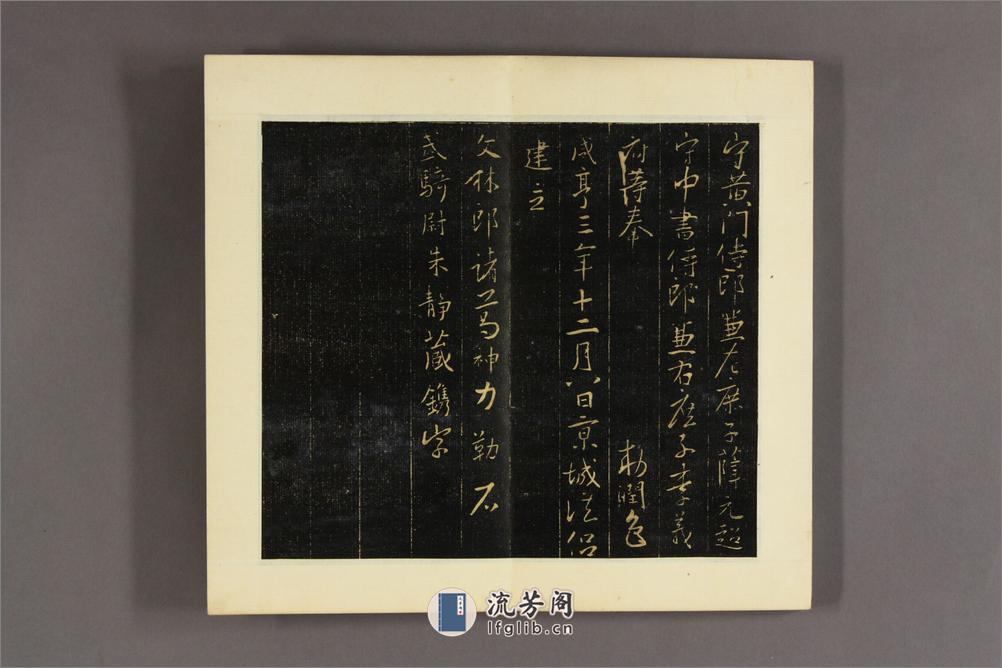 守黄门侍郎兼左庶子薛元超
守中书侍郎兼右庶子李义
府等奉 敕润色
咸亨三年十二月八日京城法侣
建立
文林郎诸葛神力勒石
武骑尉朱静藏镌字
流芳阁
lfglib.cn